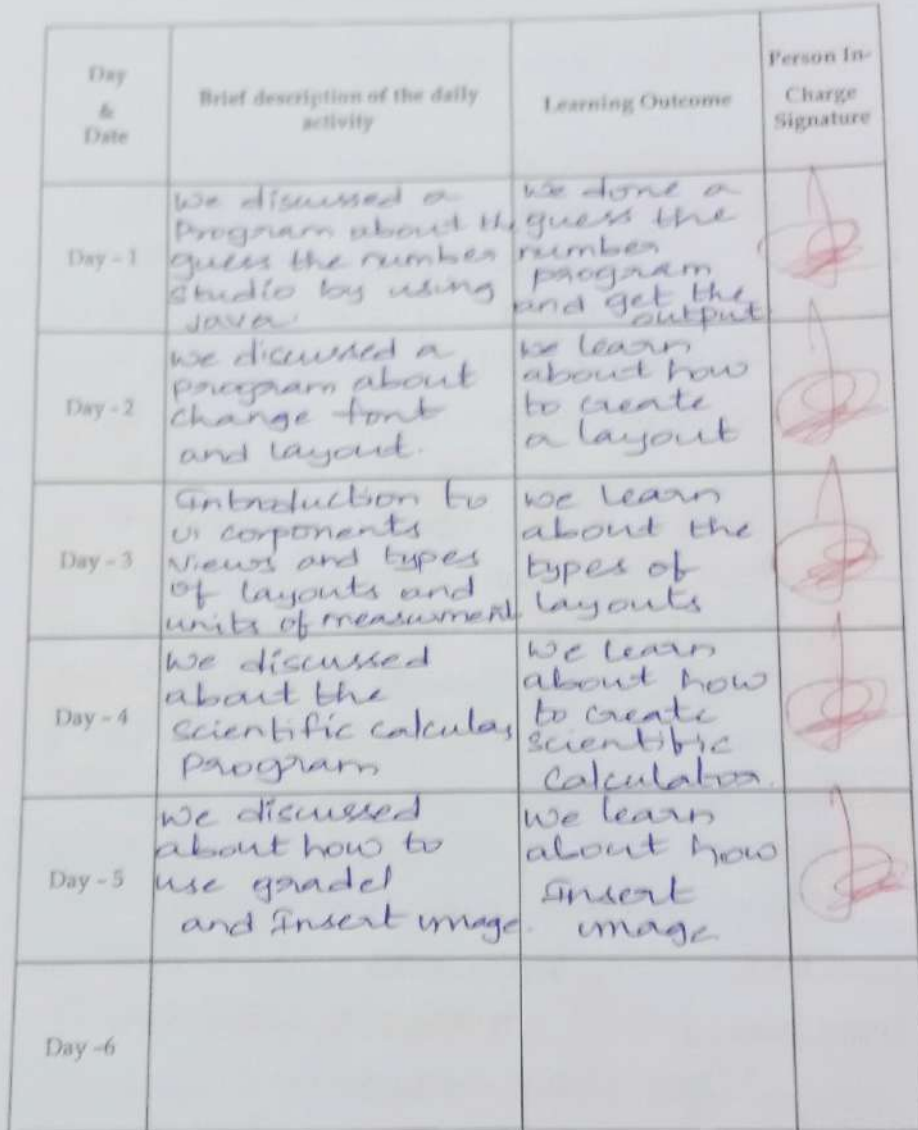 Day
&
Date
Brief description of the daily
activity
Learning Outcome
Person In-
Charge
Signature
Day - 1
We discussed a
Program about the
guess the number
studio by using
Java.
We done a
guess the
number
program
and get the
output
Day - 2
We discussed a
program about
change font
and layout.
We learn
about how
to create
a layout
Day - 3
Introduction to
UI corponents
Views and types
of layouts and
units of measurment
We learn
about the
types of
layouts
Day - 4
We discussed
about the
scientific calculas
program
We learn
about how
to create
scientific
calculator.
Day - 5
We discussed
about how to
use gradel
and Insert image.
We learn
about how
Insert
image
Day -6